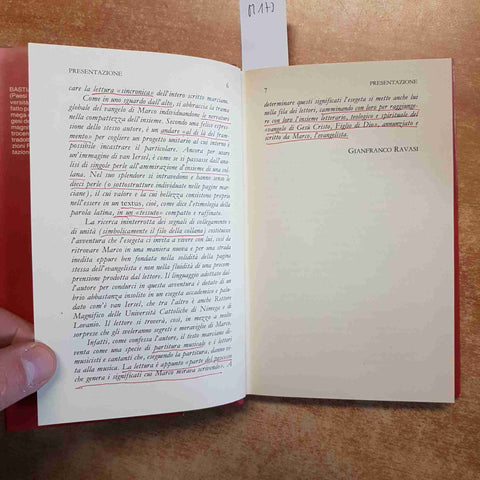 PRESENTAZIONE 6
care la lettura «sincronica» dell'intero scritto marciano.
Come in uno sguardo dall'alto, si abbraccia la trama
globale del vangelo di Marco individuandone le nervature
nella compattezza dell'insieme. Secondo una felice espres-
sione dello stesso autore, è un andare «al di là dei fram-
menti» per cogliere un progetto unitario al cui interno è
possibile incastrare il particolare. Ancora per usare
un'immagine di van Iersel, è come se si passasse dall'ana-
lisi di singole perle all'ammirazione d'insieme di una col-
lana. Nel suo splendore si intravedono e hanno senso le
dieci perle (o sottostrutture individuate nelle pagine mar-
ciane), di cui il valore e la cui bellezza consistono proprio
nell'essere in un textus, cioè, come dice l'etimologia della
parola latina, in un «tessuto» compatto e raffinato.
La ricerca ininterrotta dei segnali di collegamento e
di unità (simbolicamente il filo della collana) costituisce
l'avventura che l'esegeta ci invita a vivere con lui, così da
ritrovare Marco in una maniera nuova e per una strada
inedita eppure ben fondata nella solidità della pagina
stessa dell'evangelista e non nella fluidità di una precom-
prensione prodotta dal lettore. Il linguaggio adottato dal-
l'autore per condurci in questa avventura è dotato di un
brio abbastanza insolito in un esegeta accademico e pale-
se com'è van Iersel, che tra l'altro è anche Rettore
Magnifico delle Università Cattoliche di Nimega e di
Lovanio. Il lettore si troverà, così, in mezzo a molte
sorprese che gli sveleranno segreti e meraviglie di Marco.
Infatti, come confessa l'autore, il testo marciano di-
venta come una specie di partitura musicale e i lettori
musicisti e cantanti che, eseguendo la partitura, danno vi-
ta alla musica. La lettura è appunto «parte del processo
che genera i significati cui Marco mirava scrivendo». A
7 PRESENTAZIONE
determinare questi significati l'esegeta si mette anche lui
nella fila dei lettori, camminando con loro per raggiunge-
re con loro l'insieme letterario, teologico e spirituale del
vangelo di Gesù Cristo, Figlio di Dio, annunziato e
scritto da Marco, l'evangelista.
GIANFRANCO RAVASI